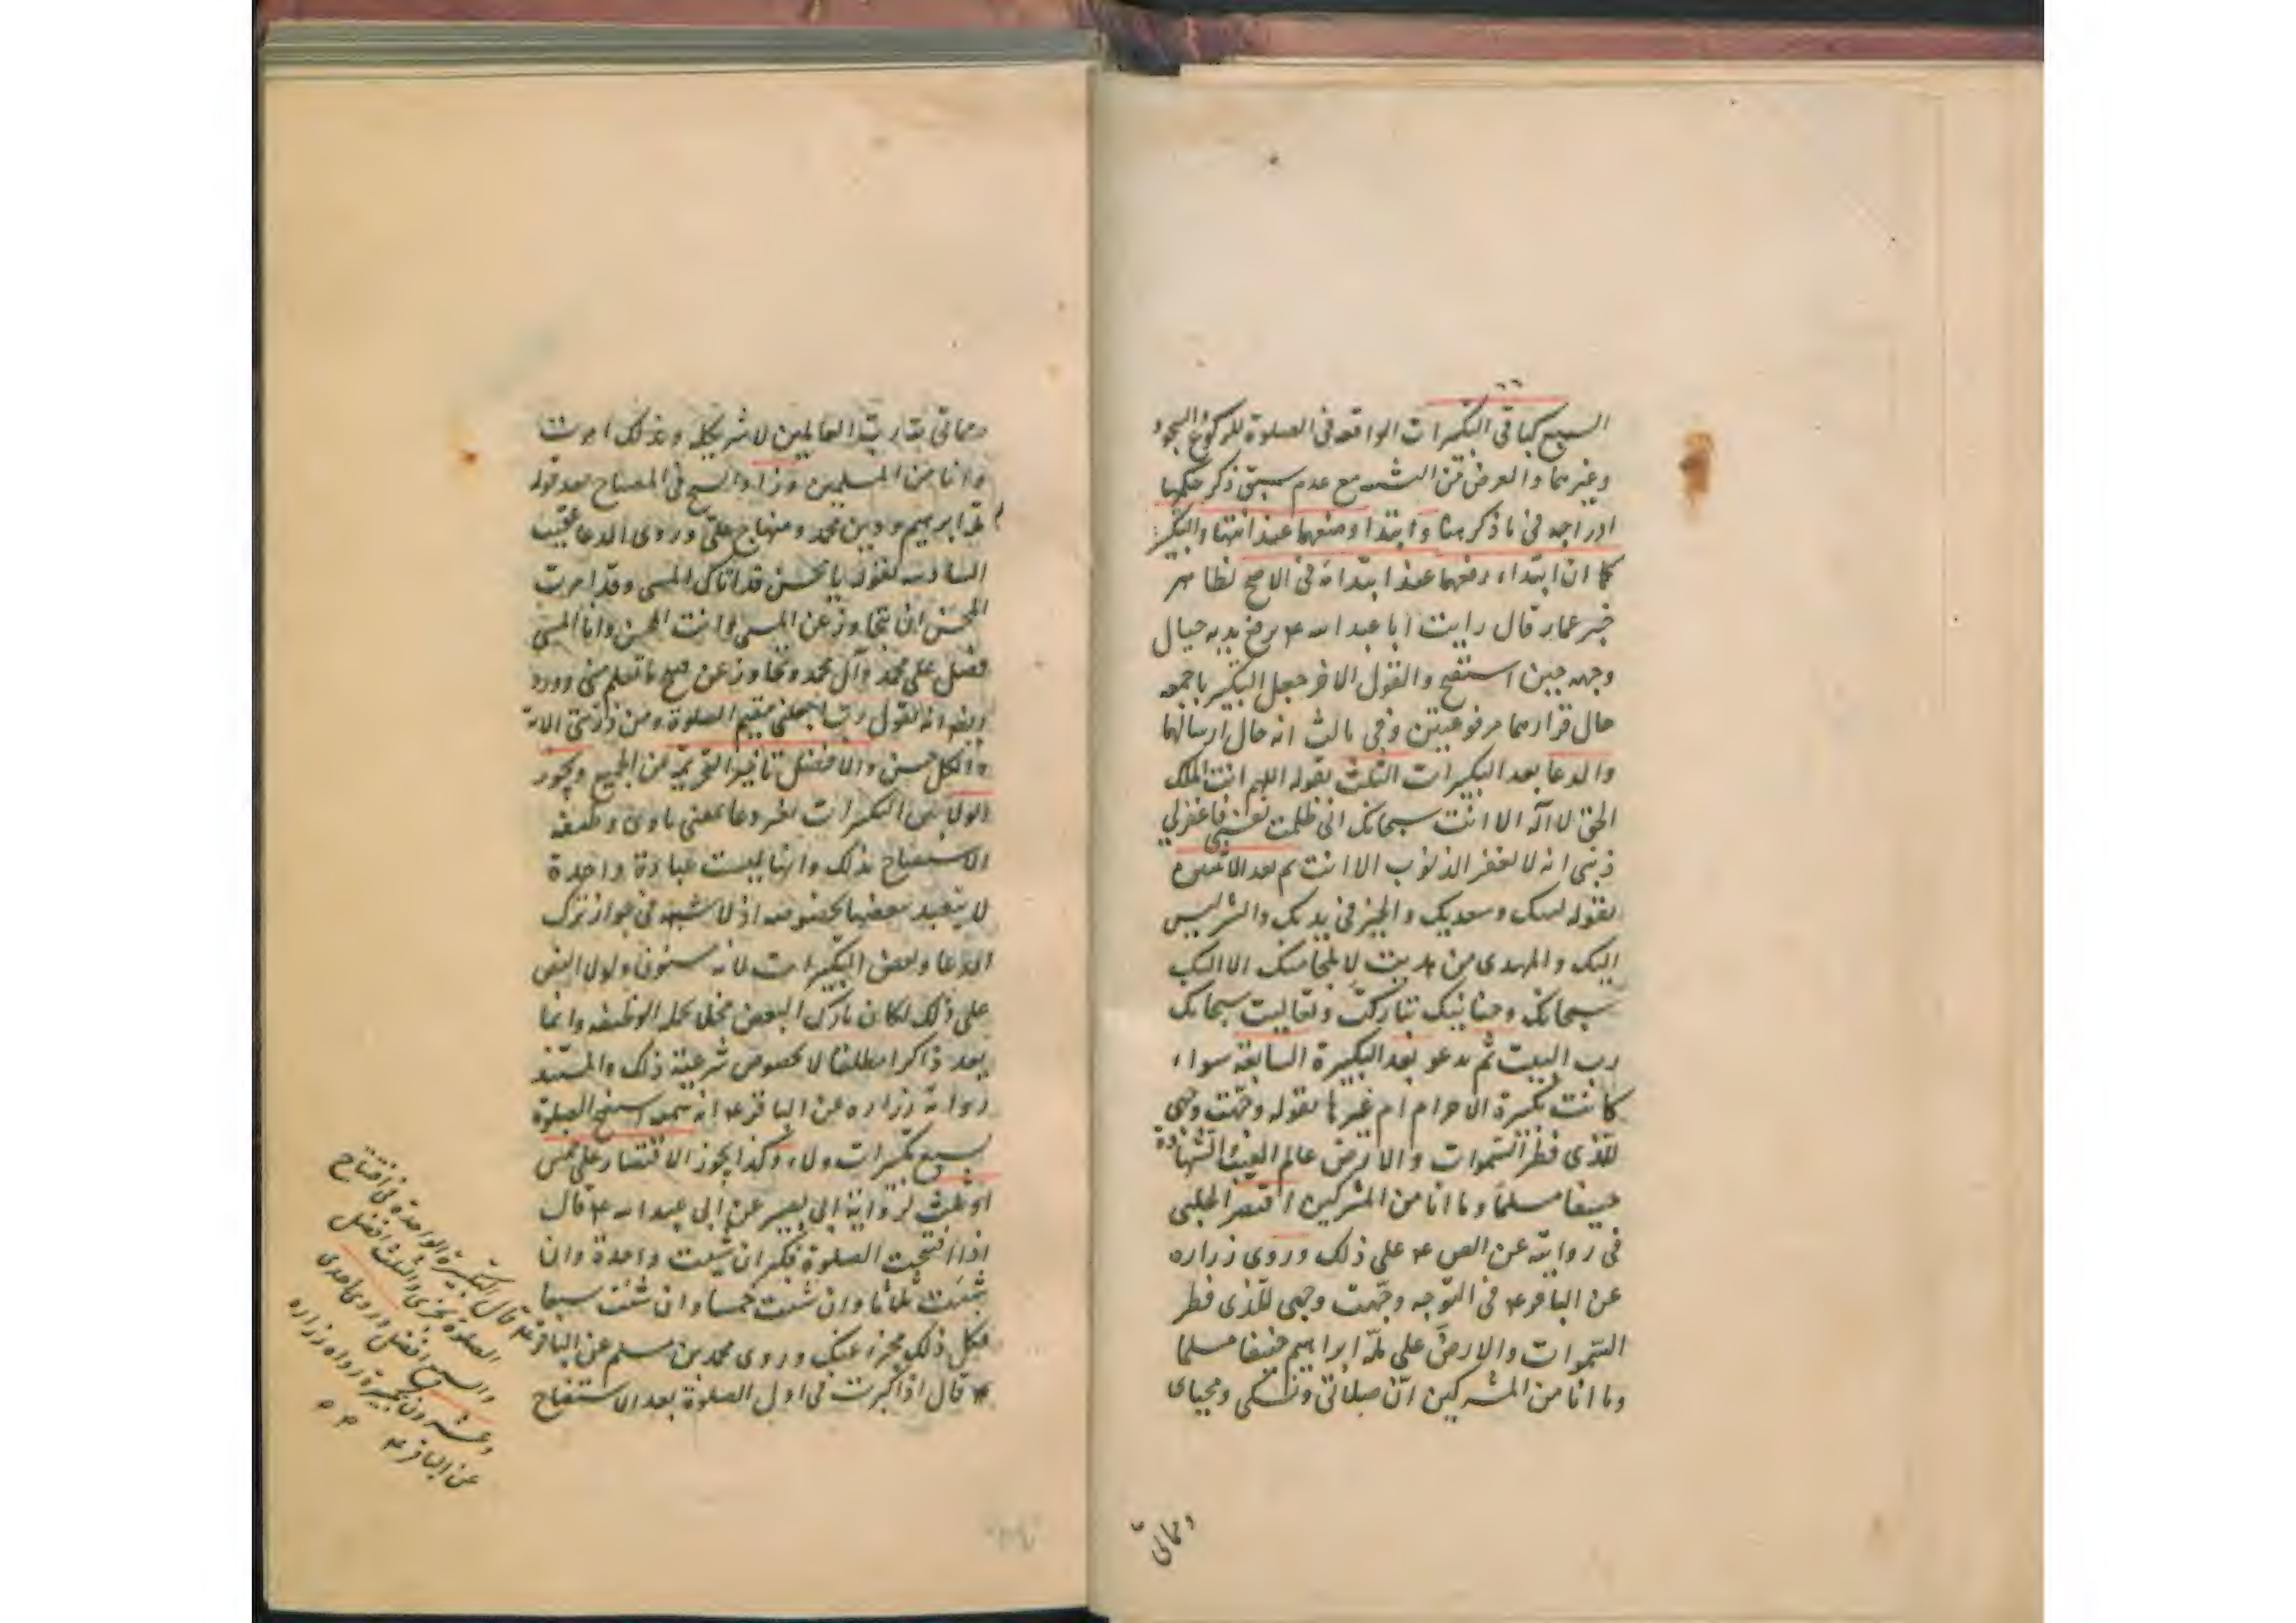 السبع كباقي التكبيرات الواقعه في الصلوة للركوع والسجود
وغيرهما والغرض من مع عدم سبق ذكر حكمها
ادراجه في ما ذكر هنا وابتدا وضعهما عند انتها والتكبير
كما ان ابتداء رفعهما عند ابتدائه في الاصح لظاهر
خبر عمار قال رايت ابا عبد الله ع يرفع يديه حيال
وجهه حين استفتح والقول الاخر جعل التكبير باجمعه
حال قرارهما مرفوعتين وفي ثالث انه حال ارسالهما
والدعا بعد التكبيرات الثلث بقوله اللهم انت الملك
الحق لا اله الا انت سبحانك اني ظلمت نفسي فاغفر لي
ذنبي انه لا يغفر الذنوب الا انت ثم بعد الاثنين
بقوله لبيك وسعديك والخير في يديك والشر ليس
اليك والمهدي من هديت لا ملجا منك الا اليك
سبحانك وحنانيك تباركت وتعاليت سبحانك
رب البيت ثم يدعو بعد التكبيرة السابعة سواء
كانت تكبيرة الاحرام ام غيرها بقوله وجهت وجهي
للذي فطر السموات والارض عالم الغيب والشهادة
حنيفا مسلما وما انا من المشركين اقتصر الحلبي
في روايته عن الص ع على ذلك وروى زراره
عن الباقر ع في التوجه وجهت وجهي للذي فطر
السموات والارض على ملة ابراهيم حنيفا مسلما
وما انا من المشركين ان صلاتي ونسكي ومحياي
ومماتي
ومماتي لله رب العالمين لا شريك له وبذلك امرت
وانا من المسلمين وزاد الشيخ في المصباح بعد قوله
ملة ابراهيم ودين محمد ومنهاج علي وروى الدعا عقيب
السادسه بقوله يا محسن قد اتاك المسي وقد امرت
المحسن ان يتجاوز عن المسي وانت المحسن وانا المسي
فصل على محمد وآل محمد وتجاوز عن قبيح ما تعلم مني وورد
ايضا انه يقول رب اجعلني مقيم الصلوة ومن ذريتي الاية
والكل حسن والافضل تاخير التحريمة عن الجميع ويجوز
الولا بين التكبيرات بغير دعا بمعنى تادى وظيفه
الاستفتاح بذلك وانها ليست عبادة واحدة
لا يتعبد ببعضها بخصوصه اذ لا شبهه في جواز ترك
الدعا وبعض التكبيرات لانه مسنون ولولا النص
على ذلك لكان تارك البعض مخلا بكل الوظيفه وانما
يعد ذاكرا مطلقا لا بخصوص شرعية ذلك والمستند
رواية زراره عن الباقر ع انه سمعه استفتح الصلوة
بسبع تكبيرات ولاء وكذا يجوز الاقتصار على خمس
او ثلث لرواية ابي بصير عن ابي عبد الله ع قال
اذا افتتحت الصلوة فكبر ان شئت واحدة وان
شئت ثلثا وان شئت خمسا وان شئت سبعا
فكل ذلك مجزء عنك وروى محمد بن مسلم عن الباقر ع قال التكبيرة الواحدة في افتتاح
الصلوة تجزي والثلث افضل
والسبع افضل وروى احدى
وعشرون تكبيرة رواه زراره
عن الباقر ع
ع قال اذا كبرت في اول الصلوة بعد الاستفتاح